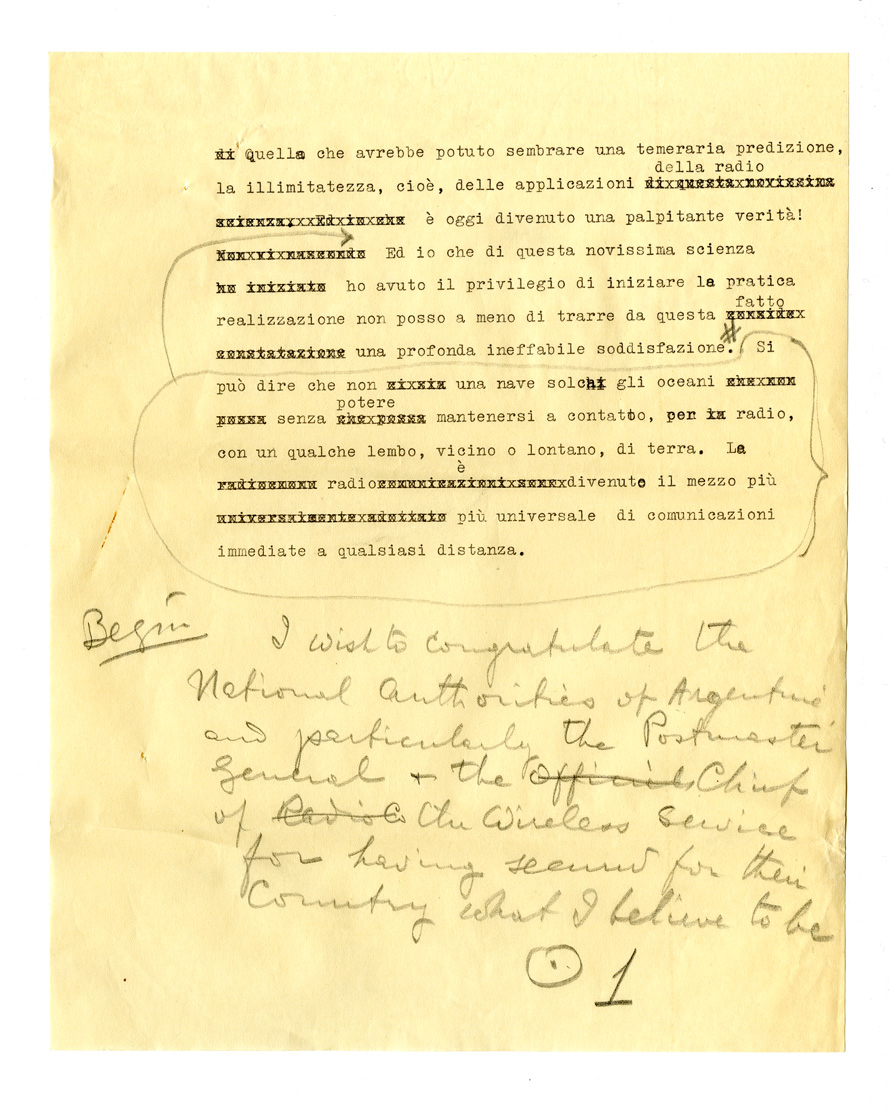 di Quella che avrebbe potuto sembrare una temeraria predizione,
della radio
la illimitatezza, cioè, delle applicazioni di questa novissima
scienza, Ed io che è oggi divenuto una palpitante verità!
Ed io che di questa novissima scienza
ho iniziato ho avuto il privilegio di iniziare la pratica
fatto
realizzazione non posso a meno di trarre da questa
constatazione una profonda ineffabile soddisfazione. Si
può dire che non esista una nave solchi gli oceani che non
potere
possa senza che possa mantenersi a contatto, per la radio,
con un qualche lembo, vicino o lontano, di terra. La
è
radio divenuto il mezzo più
universalmente adottato più universale di comunicazioni
immediate a qualsiasi distanza.
Begin
I wish to congratulate the
National Authorities of Argentine
and particularly the Postmaster
General + the Officials Chief
of Radio Co the Wireless Service
for having secured for their
Country what I believe to be
1